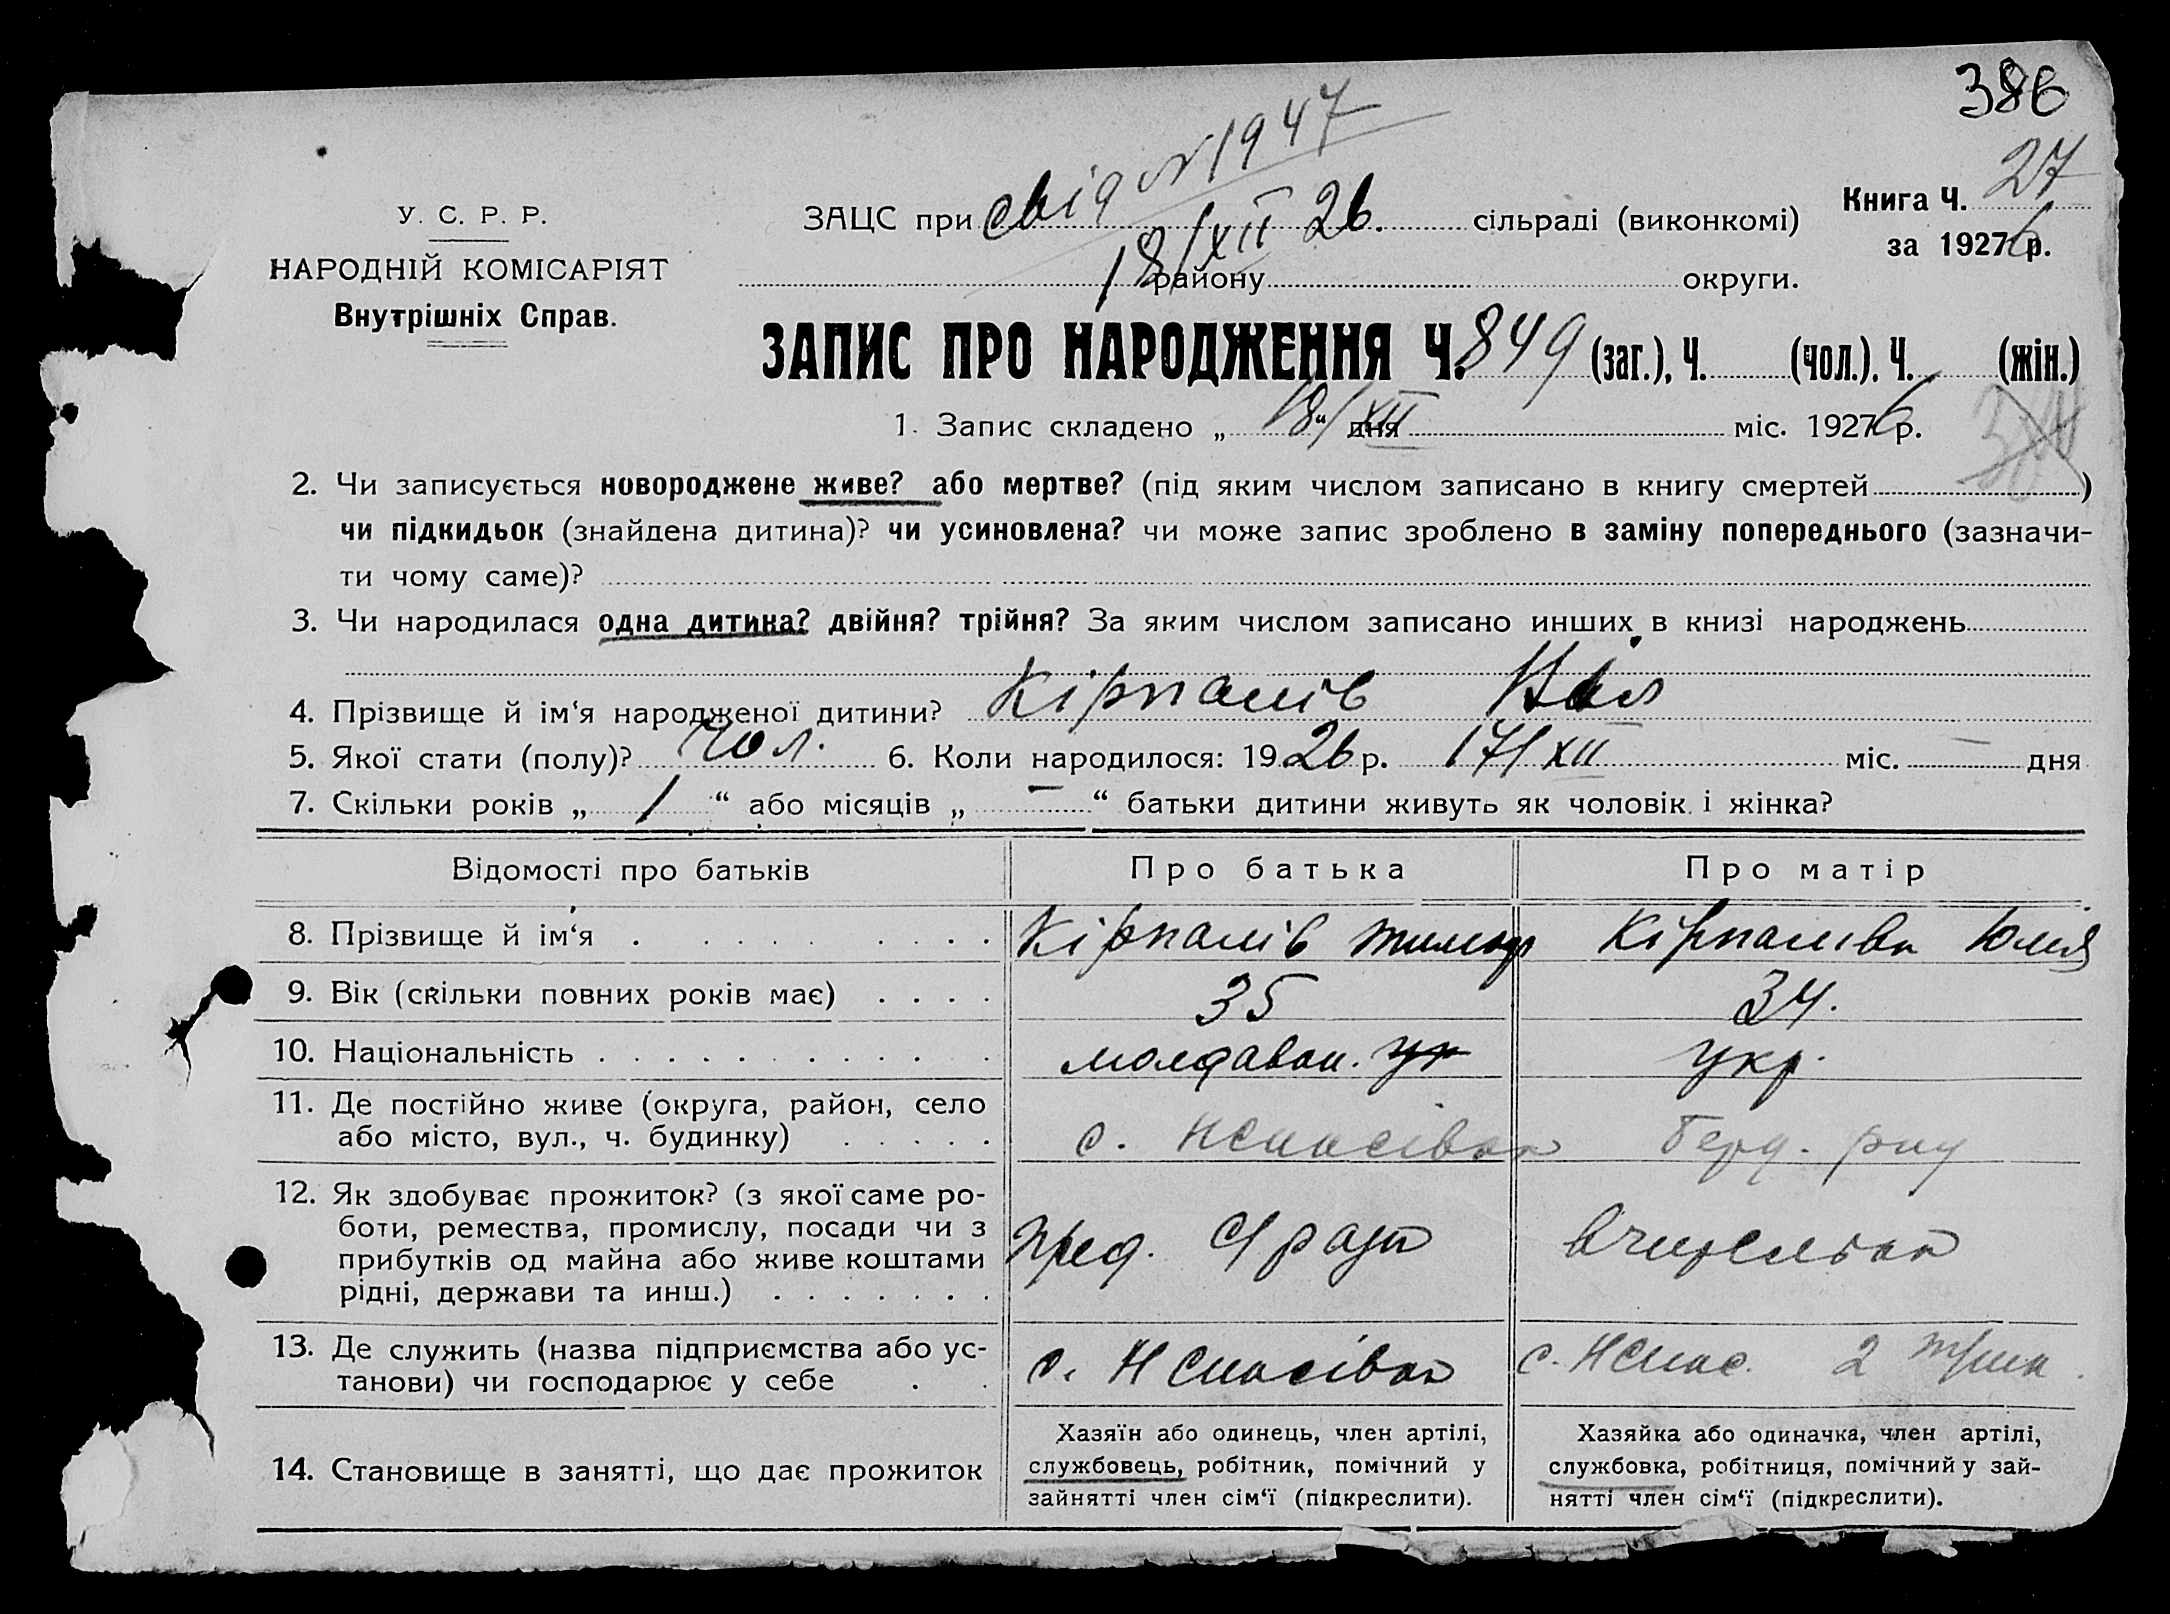 386
свід N 1947
У. С. Р. Р.
НАРОДНІЙ КОМІСАРІЯТ
Внутрішніх Справ.
ЗАЦС при 18/XII 26. сільраді (виконкомі)
району округи.
Книга Ч. 27
за 19276 р.
ЗАПИС ПРО НАРОДЖЕННЯ Ч. 849 (заг.), Ч. (чол.). Ч. (жін.)
1. Запис складено „ 18/XII “ дня міс. 19276 р.
2. Чи записується новороджене живе? або мертве? (під яким числом записано в книгу смертей )
чи підкидьок (знайдена дитина)? чи усиновлена? чи може запис зроблено в заміну попереднього (зазначи-
ти чому саме)?
3. Чи народилася одна дитина? двійня? трійня? За яким числом записано инших в книзі народжень
4. Прізвище й ім‘я народженої дитини? Кірпалів
5. Якої стати (полу)? чол. 6. Коли народилося: 1926 р. 17/XII міс. — дня
7. Скільки років „ 1 “ або місяців „ — “ батьки дитини живуть як чоловік і жінка?
Відомості про батьків Про батька Про матір
8. Прізвище й ім‘я Кірпалів Кірпаліва Юлія
9. Вік (скільки повних років має) 35 34.
10. Національність молдаван. ук укр.
11. Де постійно живе (округа, район, село
або місто, вул., ч. будинку) с. Нспасівка Берд. рну
12. Як здобуває прожиток? (з якої саме ро-
боти, ремества, промислу, посади чи з
прибутків од майна або живе коштами
рідні, держави та инш.) Пред. С/ради вчителька
13. Де служить (назва підприємства або ус-
танови) чи господарює у себе с. Нспасівка с. Нспас. 2 труд
14. Становище в занятті, що дає прожиток
Хазяїн або одинець, член артілі,
службовець, робітник, помічний у
зайнятті член сім‘ї (підкреслити).
Хазяйка або одиначка, член артілі,
службовка, робітниця, помічний у зай-
нятті член сім‘ї (підкреслити).